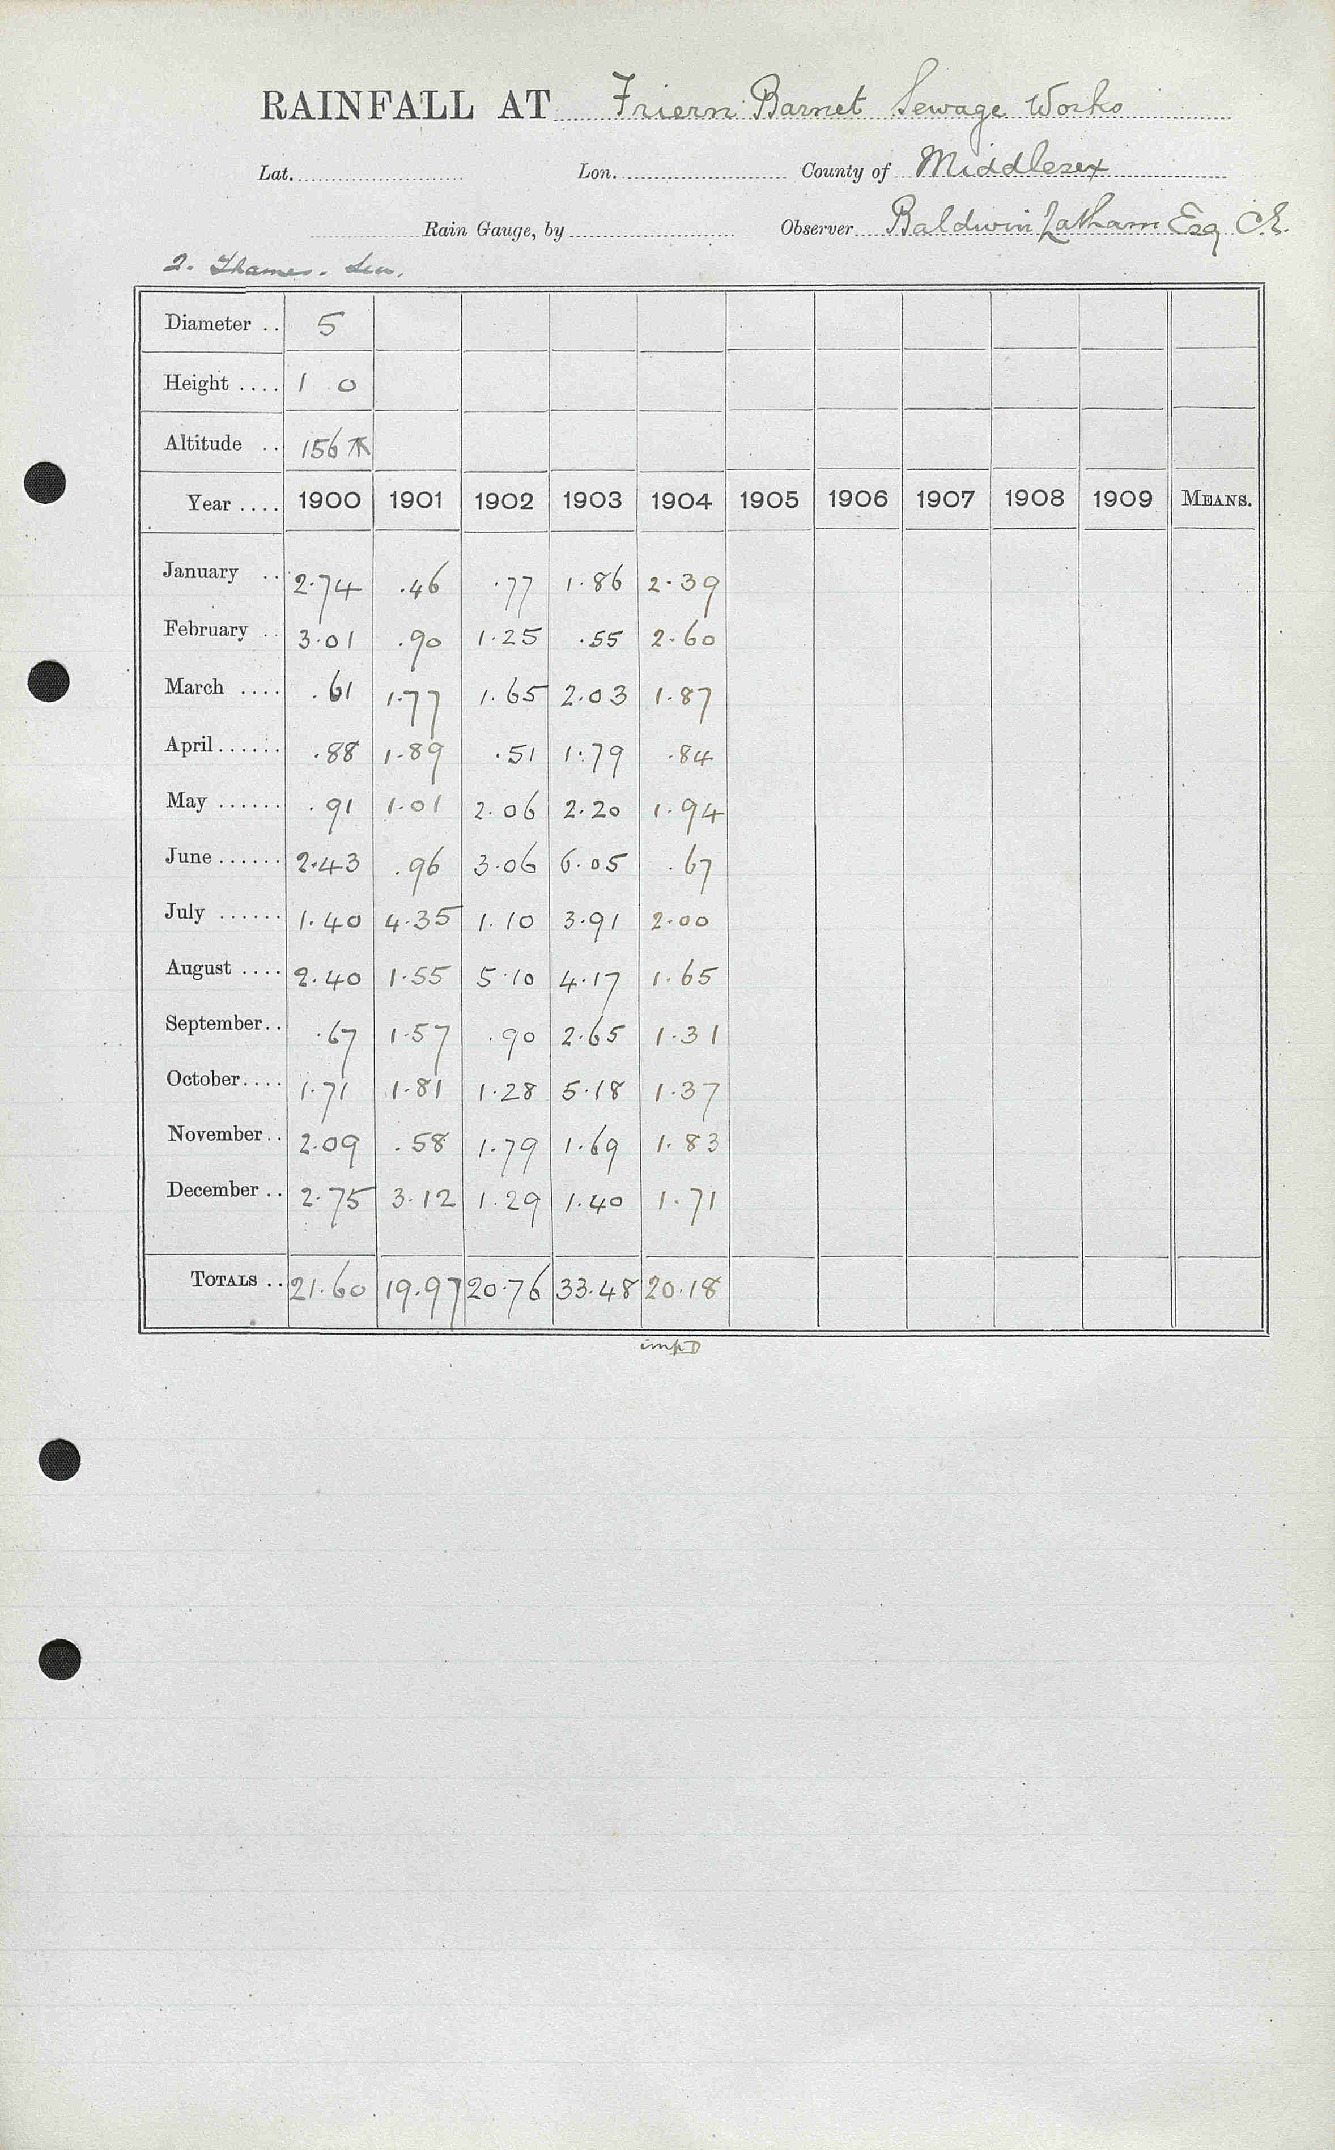 RAINFALL AT Friern Barnet Sewage Works
Lat. Lon. County of Middlesex
Rain Gauge, by Observer Baldwin Latham Esq C.E.
2. Thames. Lea.
Diameter .. 5
Height .... 1 0
Altitude .. 156
Year .... 1900 1901 1902 1903 1904 1905 1906 1907 1908 1909 MEANS.
January .. 2.74 .46 .77 1.86 2.39
February .. 3.01 .90 1.25 .55 2.60
March .... .61 1.77 1.65 2.03 1.87
April ...... .88 1.89 .51 1.79 .84
May ...... .91 1.01 2.06 2.20 1.94
June ...... 2.43 .96 3.06 6.05 .67
July ...... 1.40 4.35 1.10 3.91 2.00
August .... 2.40 1.55 5.10 4.17 1.65
September.. .67 1.57 .90 2.65 1.31
October.... 1.71 1.81 1.28 5.18 1.37
November.. 2.09 .58 1.79 1.69 1.83
December .. 2.75 3.12 1.29 1.40 1.71
TOTALS .. 21.60 19.97 20.76 33.48 20.18